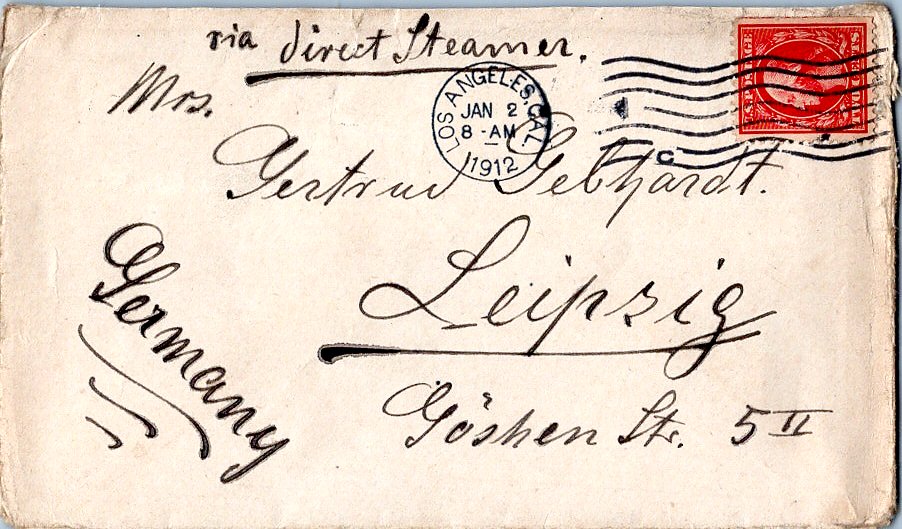 via direct Steamer.
Mrs.
LOS ANGELES, CAL.
JAN 2
8-AM
1912
C
Gertrud Gebhardt.
Leipzig
Germany
Göshen Str. 5 II